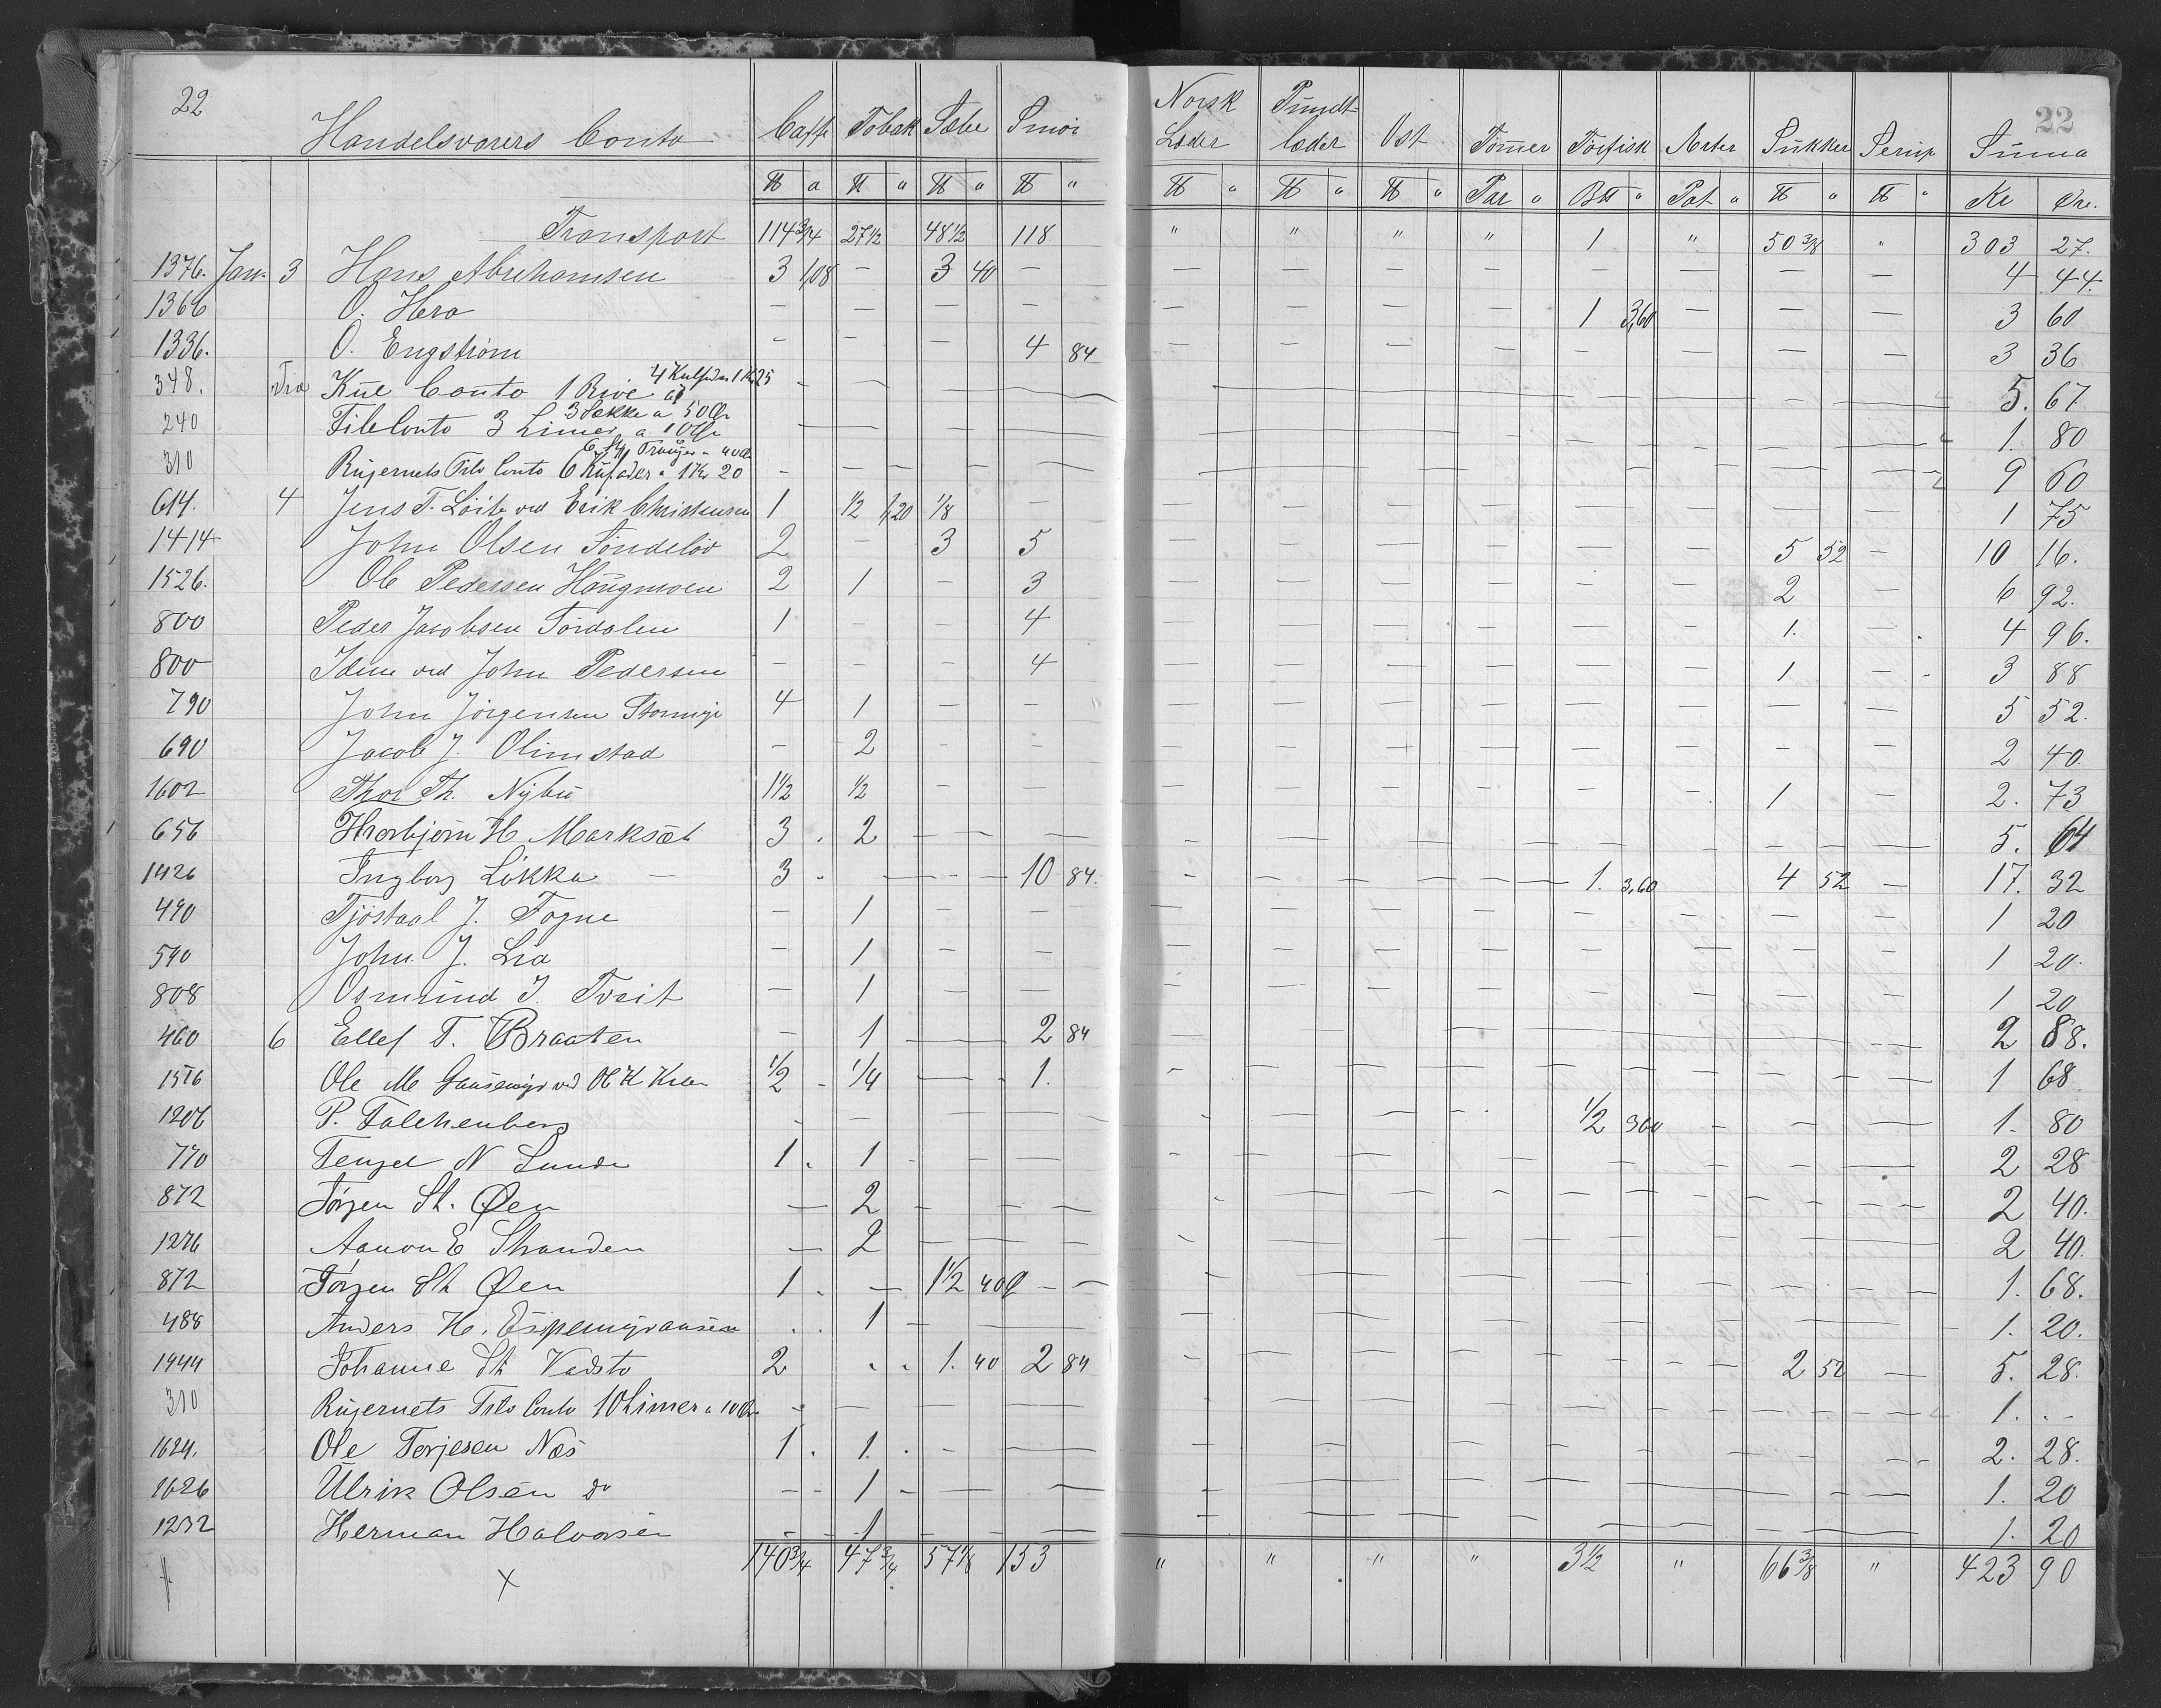 22
Handelsvarers Conto Caffe Tobak Sæbe Smör Norsk Læder Pundtlæder Ost Tömer Torfisk Erter Sukker Serup Suma 22
℔ a ℔ " ℔ " ℔ " ℔ " ℔ " ℔ " Par " B℔ " Pot " ℔ " ℔ " Kr Øre.
Transport 114 3/4 27 1/2 48 1/2 118 " " " " 1 " 50 3/8 " 303 27.
1376. Jan. 3 Hans Abrehamsen 3 1,08 — 3 40 — — — — — — — — — 4 44.
1366 O. Hera — — — — — — — — 1 3,60 — — — 3 60
1336. O. Engström — — — 4 84 — — — — — — — — 3 36
348. Dra Kue Conto 1 Rive a 4 Kulfider 1 Kr 25 — — — — 5. 67
240 Tile Conto 3 Limer a 10 Ør 3 Sække a 50 Ør — — — — 1. 80
310 Rujernets Tilv Conto 6 Kufader a 1 Kr 20 6 Tranger a 40 Ør — — — — 9 60
614. 4 Jens T. Löite ved Erik Christensen 1 1/2 1,20 1/8 — — — — — — — — — 1 75
1414 John Olsen Söndelöv 2 — 3 5 — — — — — — 5 52 — 10 16.
1526. Ole Pedersen Haugmoen 2 1 — 3 — — — — — — 2 — 6 92.
800 Peder Jacobsen Tördalen 1 — — 4 — — — — — — 1. — 4 96.
800 Idem ved John Pedersen — — — 4 — — — — — — 1 — 3 88
790 John Jörgensen Stormyr 4 1 — — — — — — — — — — 5 52.
690 Jacob J. Olimstad — 2 — — — — — — — — — — 2 40.
1602 Thor Th. Nybu 1 1/2 1/2 — — — — — — — — 1 — 2. 73
656 Thorbjörn H Marksæt 3 . 2 — — — — — — — — — — 5. 64
1426 Ingborg Lökka — 3 . — — 10 84. — — — — 1. 3,60 4 52 — 17. 32
490 Tjöstaal J. Fogne — 1 — — — — — — — — — — 1 20
590 John J. Lia — 1 — — — — — — — — — — 1 20.
808 Osmund I. Tveit — 1 — — — — — — — — — — 1 20
460 6 Ellef T. Braaten — 1 — 2 84 — — — — — — — — 2 88.
1516 Ole M Gausemyr ved Ole K Kile 1/2 - 1/4 — 1. — — — — — — — — 1 68
1206 P. Falchenberg — — — — — — — — 1/2 360 — — — 1. 80
770 Tengel N Lunde 1. 1 — — — — — — — — — — 2 28
872 Törgen St. Øen — 2 — — — — — — — — — — 2 40.
1276 Aanon E Stranden — 2 — — — — — — — — — — 2 40.
872 Törgen St Øen 1. — 1 1/2 40 — — — — — — — — — 1. 68.
488 Anders H. Espemyransen . . 1 — — — — — — — — — — 1. 20.
1444 Johanne St Vadsto 2 . . 1. 40 2 84 — — — — — — 2 52 — 5. 28.
310 Rujernets Tilv Conto 10 Limer a 10 Ør. — — — — — — — — — — — — 1. . -
1624. Ole Torjesen Næs 1. 1. — — — — — — — — — — 2. 28.
1626 Ulrik Olsen do — 1 — — — — — — — — — — 1. 20
1232 Herman Halvorsen — 1 — — — — — — — — — — 1. 20
140 3/4 47 3/4 57 1/8 153 " " " " 3 1/2 " 66 3/8 " 423 90